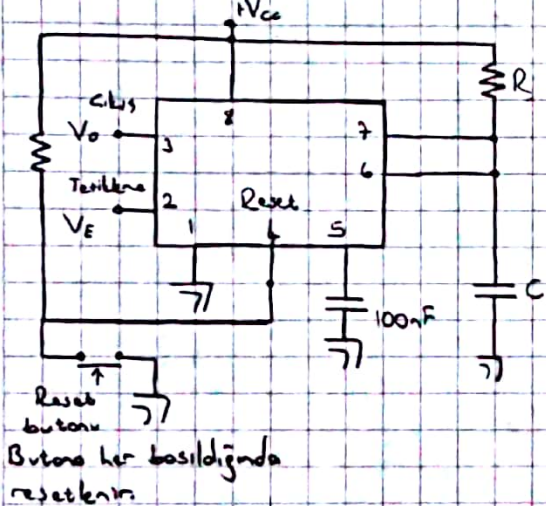 +Vcc
R
Çıkış
Vo
Tetikleme
VE
8
3
2
7
6
Reset
1
4
5
100nF
C
Reset
butonu
Butona her basıldığında
resetlenir.